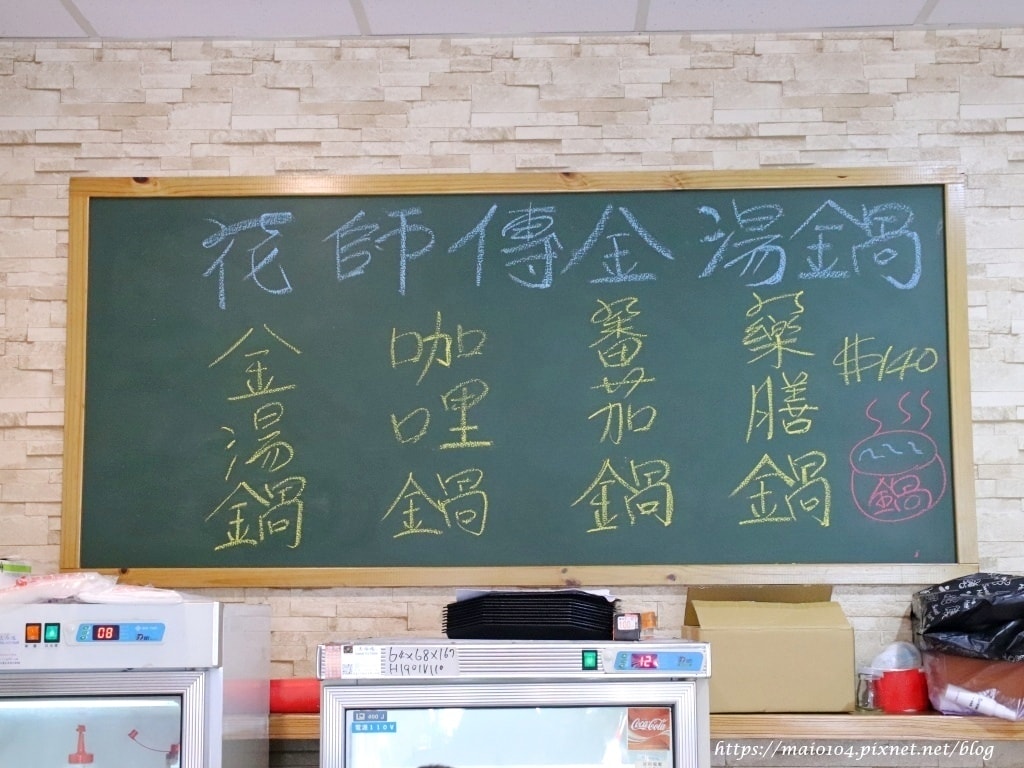 花師傅金湯鍋
金湯鍋
咖哩鍋
蕃茄鍋
藥膳鍋
$140
鍋
08
64×68×167
H190IV110
12
400 J
電源110V
Coca-Cola
https://maio104.pixnet.net/blog